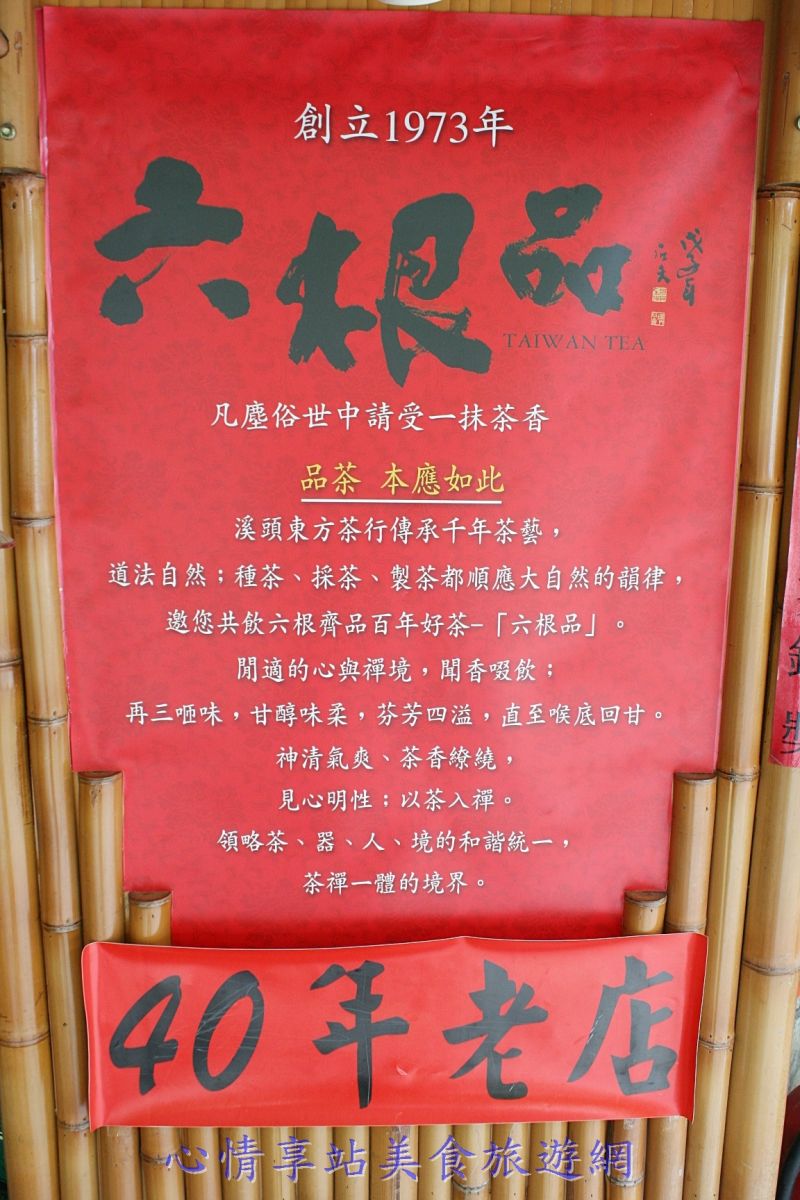 創立1973年
六根品
戊子年
TAIWAN TEA
凡塵俗世中請受一抹茶香
品茶 本應如此
溪頭東方茶行傳承千年茶藝，
道法自然；種茶、採茶、製茶都順應大自然的韻律，
邀您共飲六根齊品百年好茶-「六根品」。
閒適的心與禪境，聞香啜飲；
再三咂味，甘醇味柔，芬芳四溢，直至喉底回甘。
神清氣爽、茶香繚繞，
見心明性；以茶入禪。
領略茶、器、人、境的和諧統一，
茶禪一體的境界。
40年老店
心情享站美食旅遊網